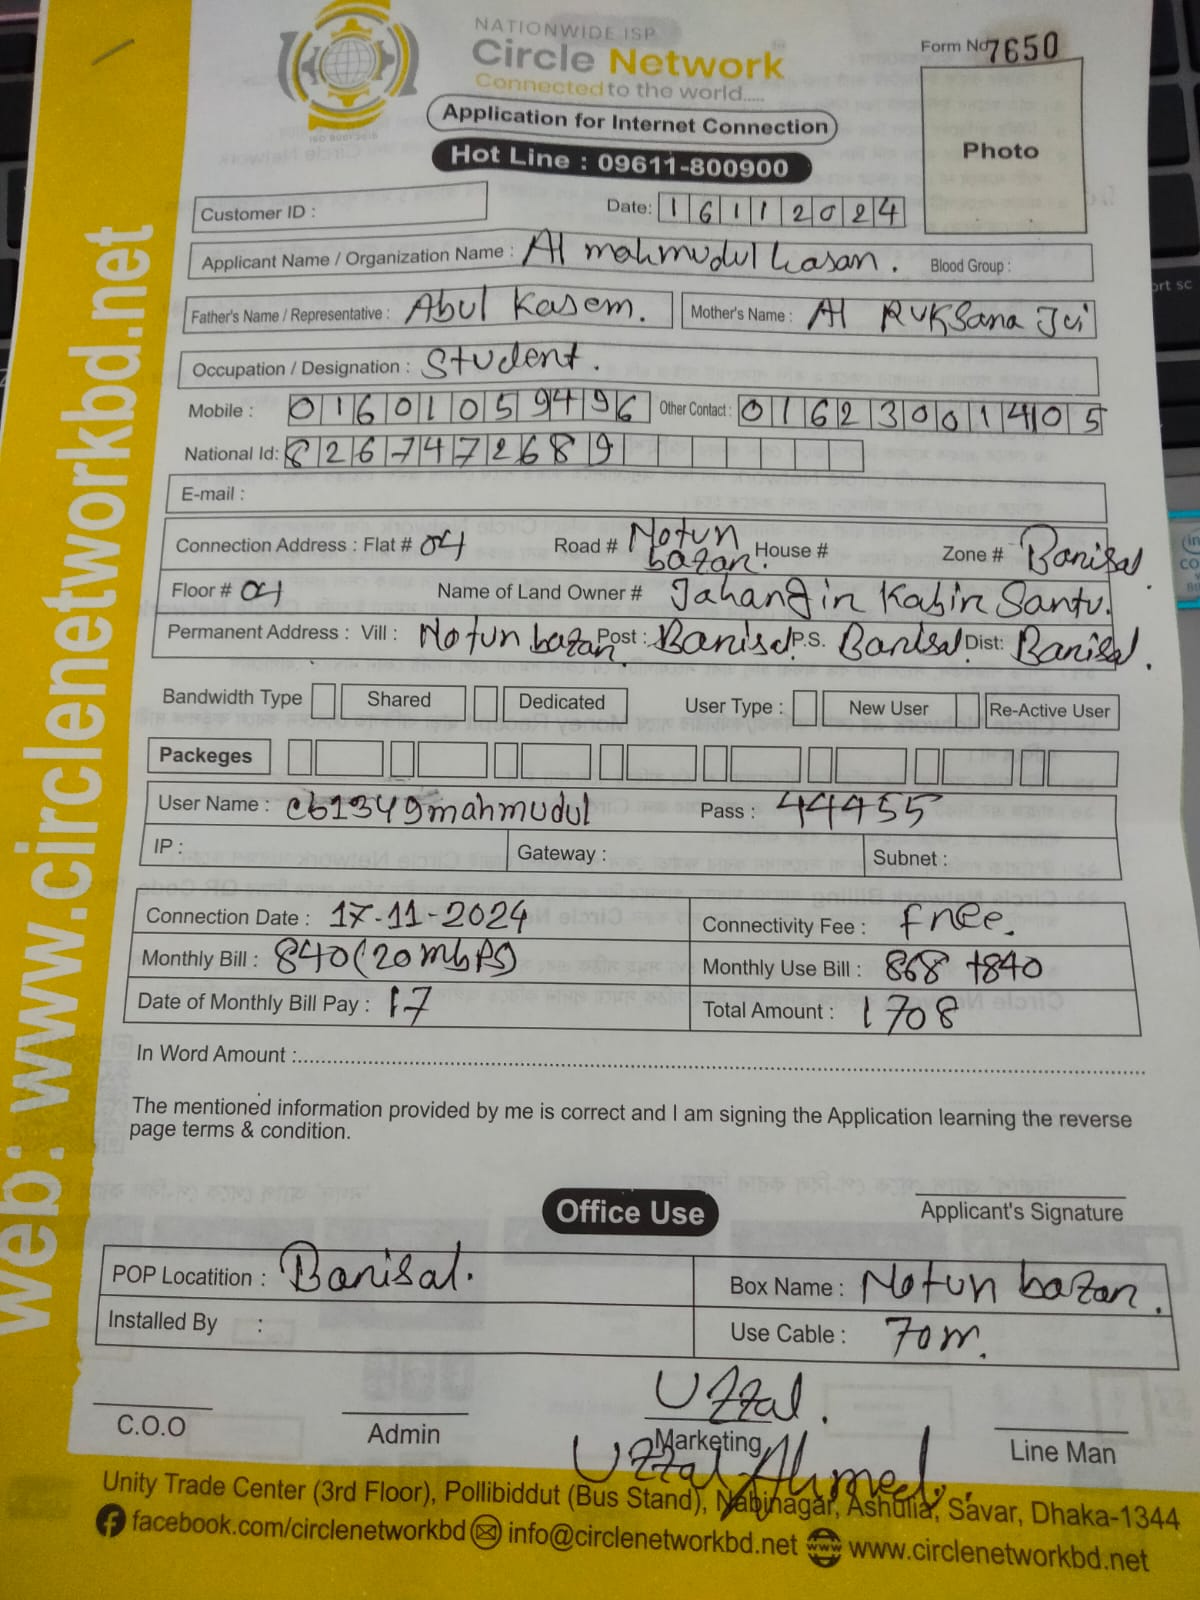 NATIONWIDE ISP
Circle Network
Connected to the world.....
ISO 9001:2015
Form No 7650
Application for Internet Connection
Hot Line : 09611-800900
Photo
Customer ID :
Date: 16112024
Applicant Name / Organization Name : Al mahmudul hasan. Blood Group :
Father's Name / Representative : Abul Kasem. Mother's Name : Al Ruksana Jui
Occupation / Designation : Student.
Mobile : 01601059496 Other Contact : 01623001405
National Id: 8267472689
E-mail :
Connection Address : Flat # 04 Road # Notun bazar. House # Zone # Barisal.
Floor # 04 Name of Land Owner # Jahangir Kabir Santu.
Permanent Address : Vill : Notun bazar. Post : Barisal. P.S. Barisal Dist: Barisal.
Bandwidth Type Shared Dedicated User Type : New User Re-Active User
Packeges
User Name : cb1349mahmudul Pass : 44455
IP : Gateway : Subnet :
Connection Date : 17-11-2024 Connectivity Fee : free.
Monthly Bill : 840(20 mbps) Monthly Use Bill : 868 +840
Date of Monthly Bill Pay : 17 Total Amount : 1708
In Word Amount :
The mentioned information provided by me is correct and I am signing the Application learning the reverse
page terms & condition.
Office Use
Applicant's Signature
POP Locatition : Barisal. Box Name : Notun bazar.
Installed By : Use Cable : 70m.
Uzzal.
C.O.O Admin Marketing Line Man
Uzzal Ahmed.
Unity Trade Center (3rd Floor), Pollibiddut (Bus Stand), Nabinagar, Ashulia, Savar, Dhaka-1344
facebook.com/circlenetworkbd info@circlenetworkbd.net www.circlenetworkbd.net
web: www.circlenetworkbd.net